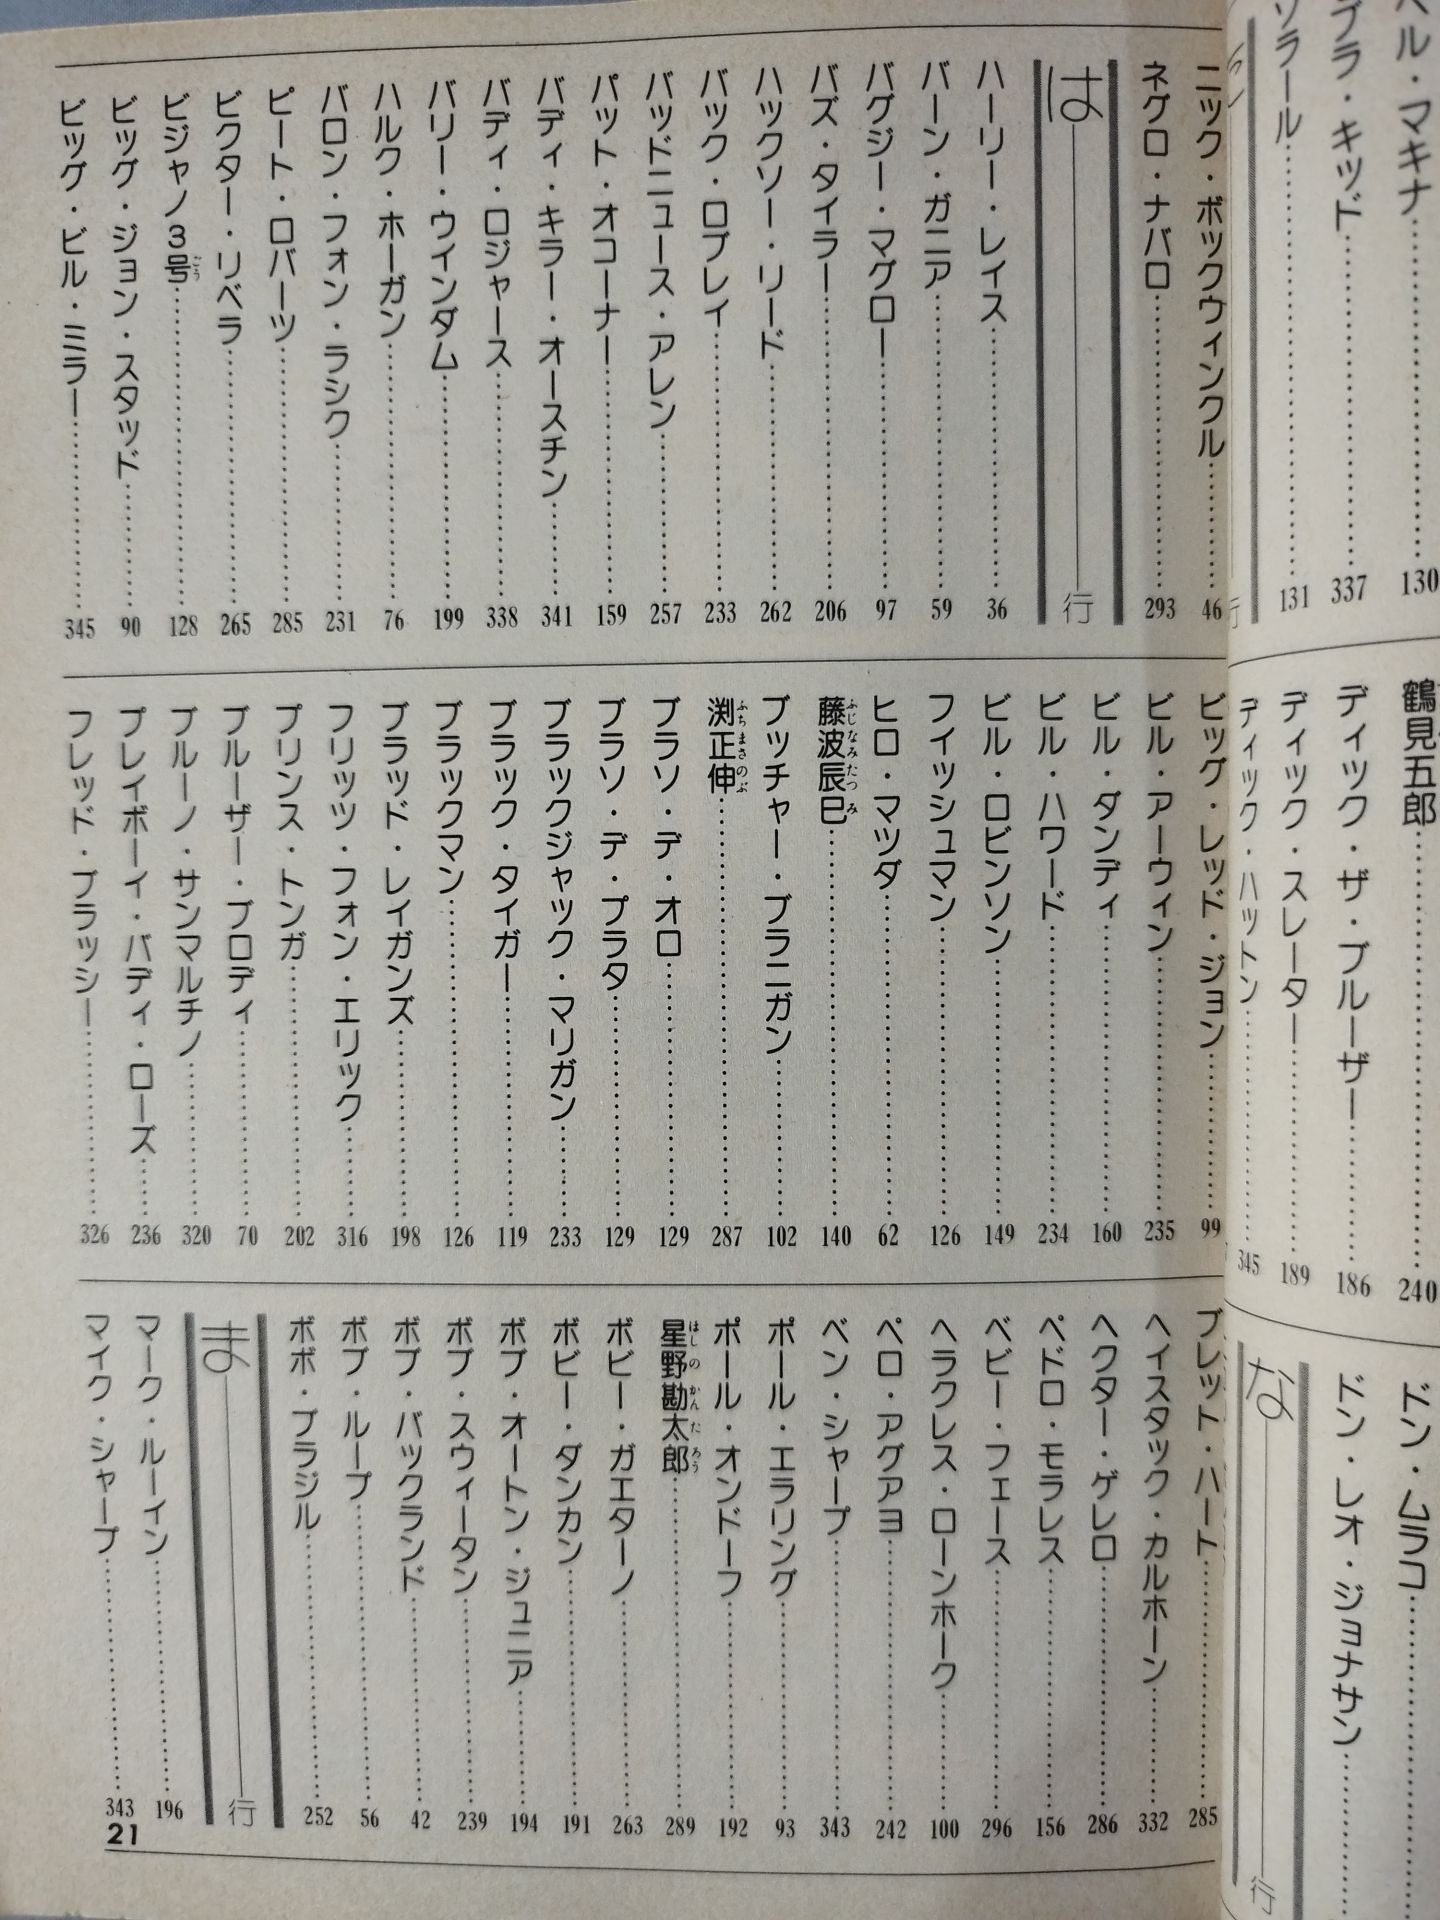 ベル・マキナ……130
ブラ・キッド……337
ソラール……131
鶴見五郎……240
ディック・ザ・ブルーザー……186
ディック・スレーター……189
ディック・ハットン……345
ドン・ムラコ……
ドン・レオ・ジョナサン……
な行
ニック・ボックウィンクル……46
ネグロ・ナバロ……293
は行
ハーリー・レイス……36
バーン・ガニア……59
バグジー・マグロー……97
バズ・タイラー……206
ハックソー・リード……262
バック・ロブレイ……233
バッドニュース・アレン……257
パット・オコーナー……159
バディ・キラー・オースチン……341
バディ・ロジャース……338
バリー・ウインダム……199
ハルク・ホーガン……76
バロン・フォン・ラシク……231
ピート・ロバーツ……285
ビクター・リベラ……265
ビジャノ3号ごう……128
ビッグ・ジョン・スタッド……90
ビッグ・ビル・ミラー……345
ビッグ・レッド・ジョン……99
ビル・アーウィン……235
ビル・ダンディ……160
ビル・ハワード……234
ビル・ロビンソン……149
フイッシュマン……126
ヒロ・マツダ……62
藤波辰巳ふじなみたつみ……140
ブッチャー・ブラニガン……102
渕正伸ふちまさのぶ……287
ブラソ・デ・オロ……129
ブラソ・デ・プラタ……129
ブラックジャック・マリガン……233
ブラック・タイガー……119
ブラックマン……126
ブラッド・レイガンズ……198
フリッツ・フォン・エリック……316
プリンス・トンガ……202
ブルーザー・ブロディ……70
ブルーノ・サンマルチノ……320
プレイボーイ・バディ・ローズ……236
フレッド・ブラッシー……326
ブレット・ハート……285
ヘイスタック・カルホーン……332
ヘクター・ゲレロ……286
ペドロ・モラレス……156
ベビー・フェース……296
ヘラクレス・ローンホーク……100
ペロ・アグアヨ……242
ベン・シャープ……343
ポール・エラリング……93
ポール・オンドーフ……192
星野勘太郎ほしのかんたろう……289
ボビー・ガエターノ……263
ボビー・ダンカン……191
ボブ・オートン・ジュニア……194
ボブ・スウィータン……239
ボブ・バックランド……42
ボブ・ループ……56
ボボ・ブラジル……252
ま行
マーク・ルーイン……196
マイク・シャープ……343
21